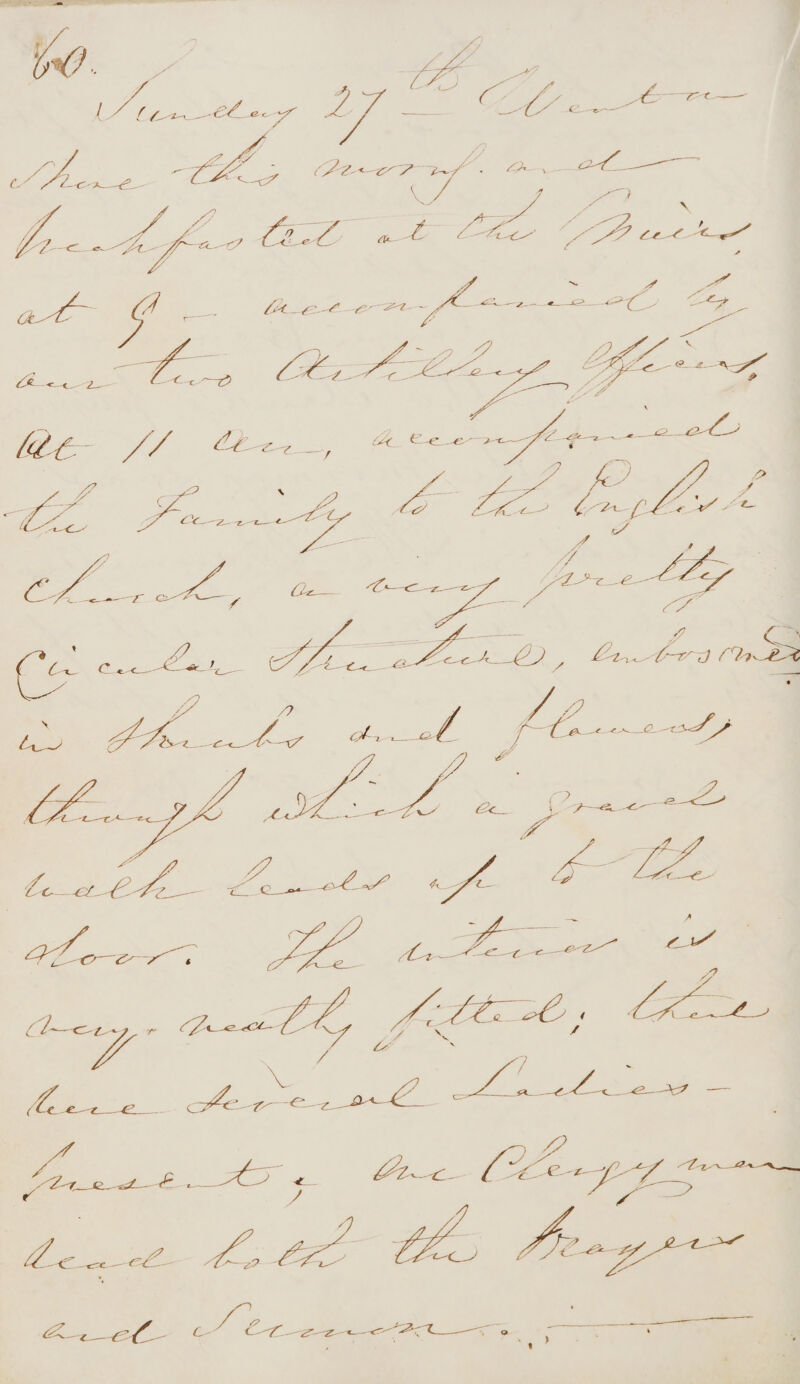 60.
Sunday 27th Went on
Shore this morng. and
breakfasted at the Muirs,
at 9 — accompanied by
our two Artillery Officers,
At 11 am, accompanied
the Family to the English
Church, a very pretty
Circular Structure, embosomed
in Shrubs and flowers,
through which a gravel
walk leads up to the
door. The interior is
very neatly fitted; there
were several Ladies —
present, One Clergyman
read both the Prayers
and Sermon. —